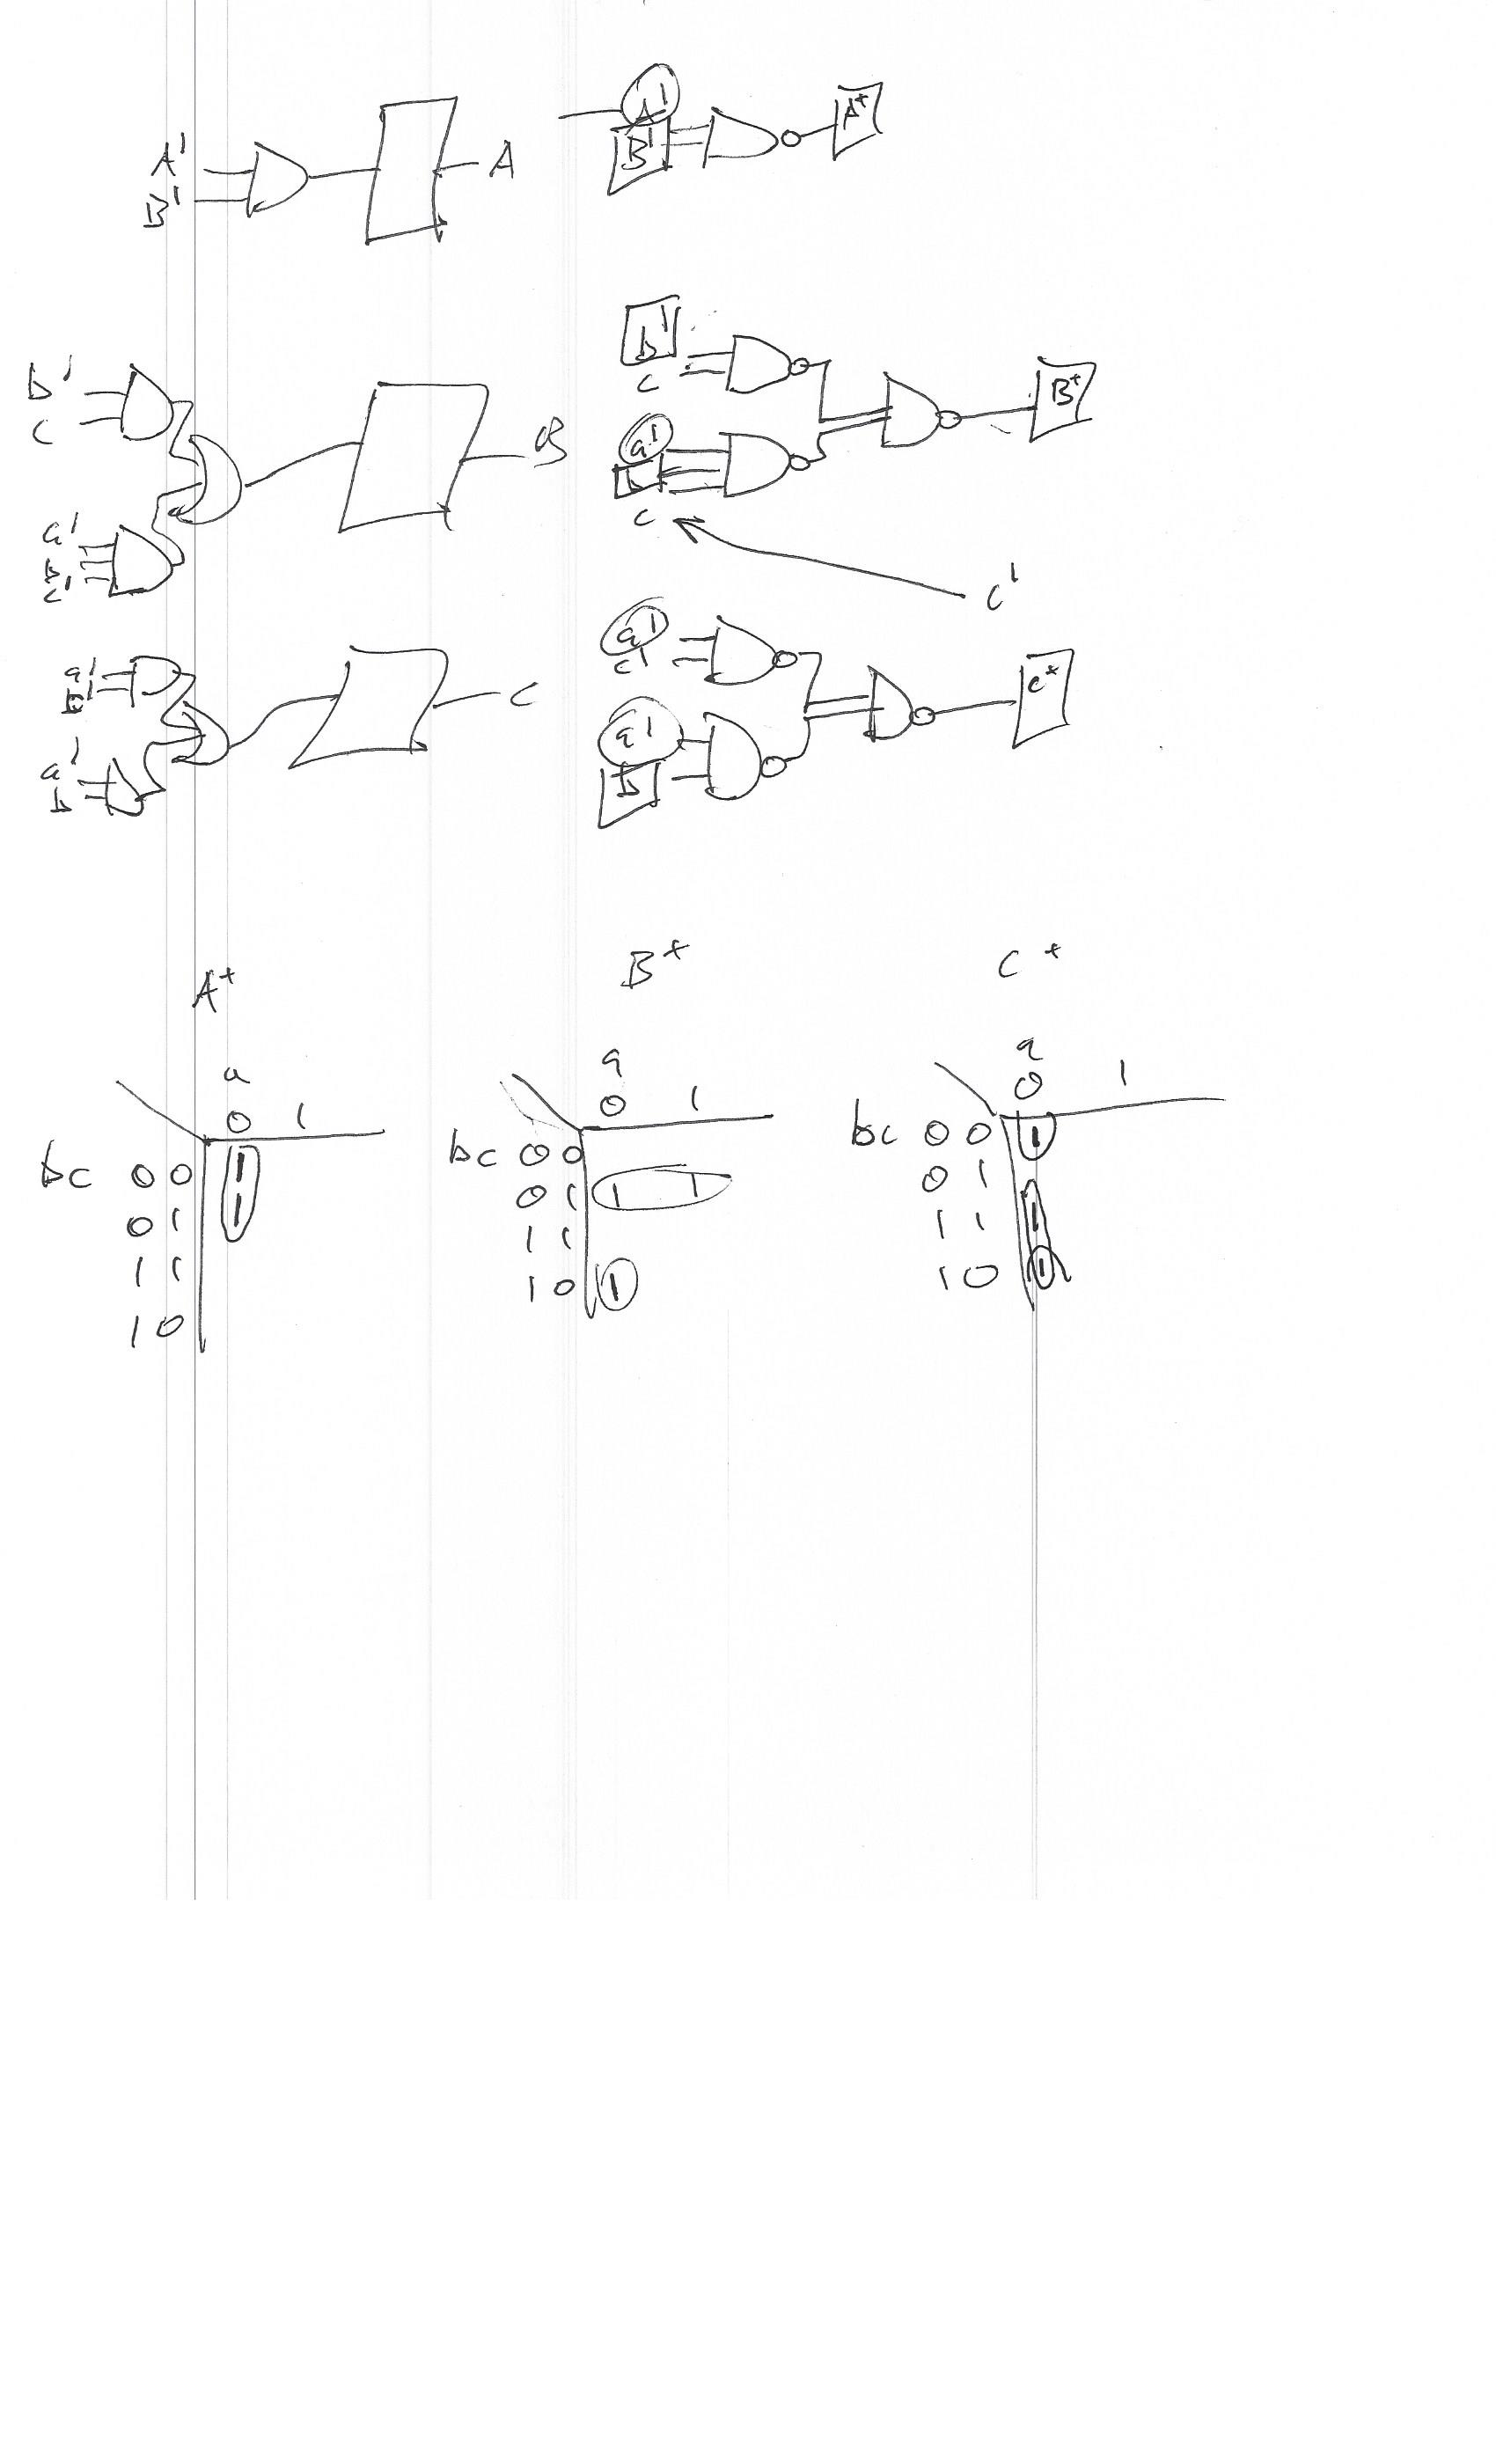 A'
B'
A
A'
B'
A+
b'
c
a'
b
c'
B
b'
c
a'
b
c
B+
c'
a'
b'
a'
b
C
a'
c'
a'
b
C+
A+
B+
C+
a
0 1
bc 00 1
01 1
11
10
a
0 1
bc 00
01 1 1
11
10 1
a
0 1
bc 00 1
01
11 1
10 1